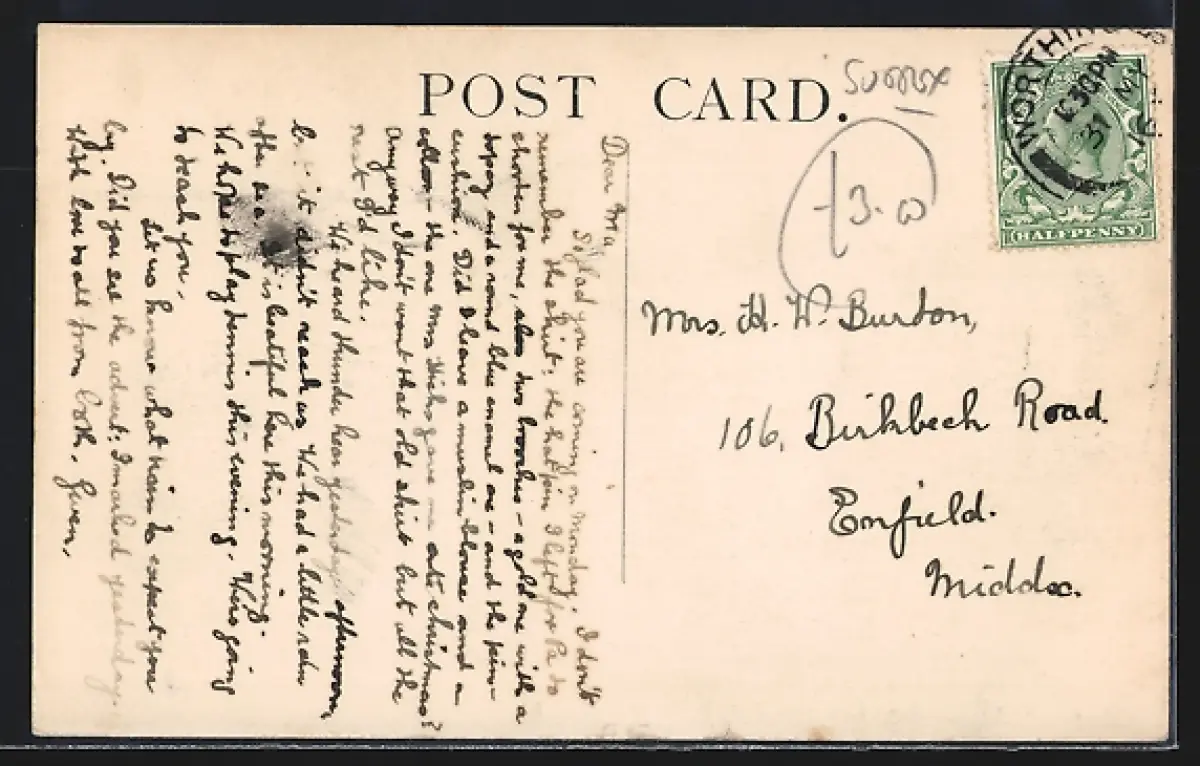 POST CARD.
Sussex
13.0
WORTHING
6 30 PM
31 MY
HALFPENNY
Mrs. H. W. Burdon,
106, Birkbeck Road.
Enfield.
Middx.
Dear Ma
So glad you are coming on Monday. I don't
remember the skirt; the hatpin I left for Pa to
shorten for me, also two brooches - a gold one with a
topaz and a round blue enamel one - and the pin-
cushion. Did I leave a muslin blouse and a
collar - the one Mrs Hicks gave me at christmas?
anyway I don't want that old skirt but all the
rest I'd like.
We heard thunder hear yesterday afternoon,
it didn't reach us. We had a little rain
after tea is beautiful here this morning.
We hope to play tennis this evening. Was going
to teach you.
Let us know what train to expect you
by. Did you see the advert; I marked yesterday.
With love to all from both. Gwen.